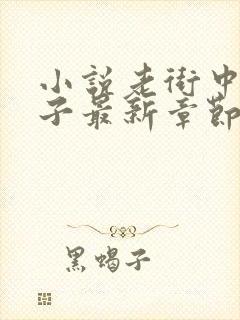 小说老街中
子最新章节
黑蝎子